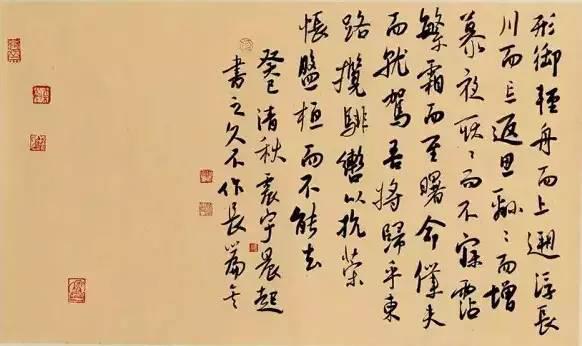 形御輕舟而上遡浮長
川而忘返思綿〻而增
慕夜耿〻而不寐霑
繁霜而至曙命僕夫
而就駕吾將歸乎東
路攬騑轡以抗策
悵盤桓而不能去
癸巳清秋震宇晨起
書之久不作長篇矣